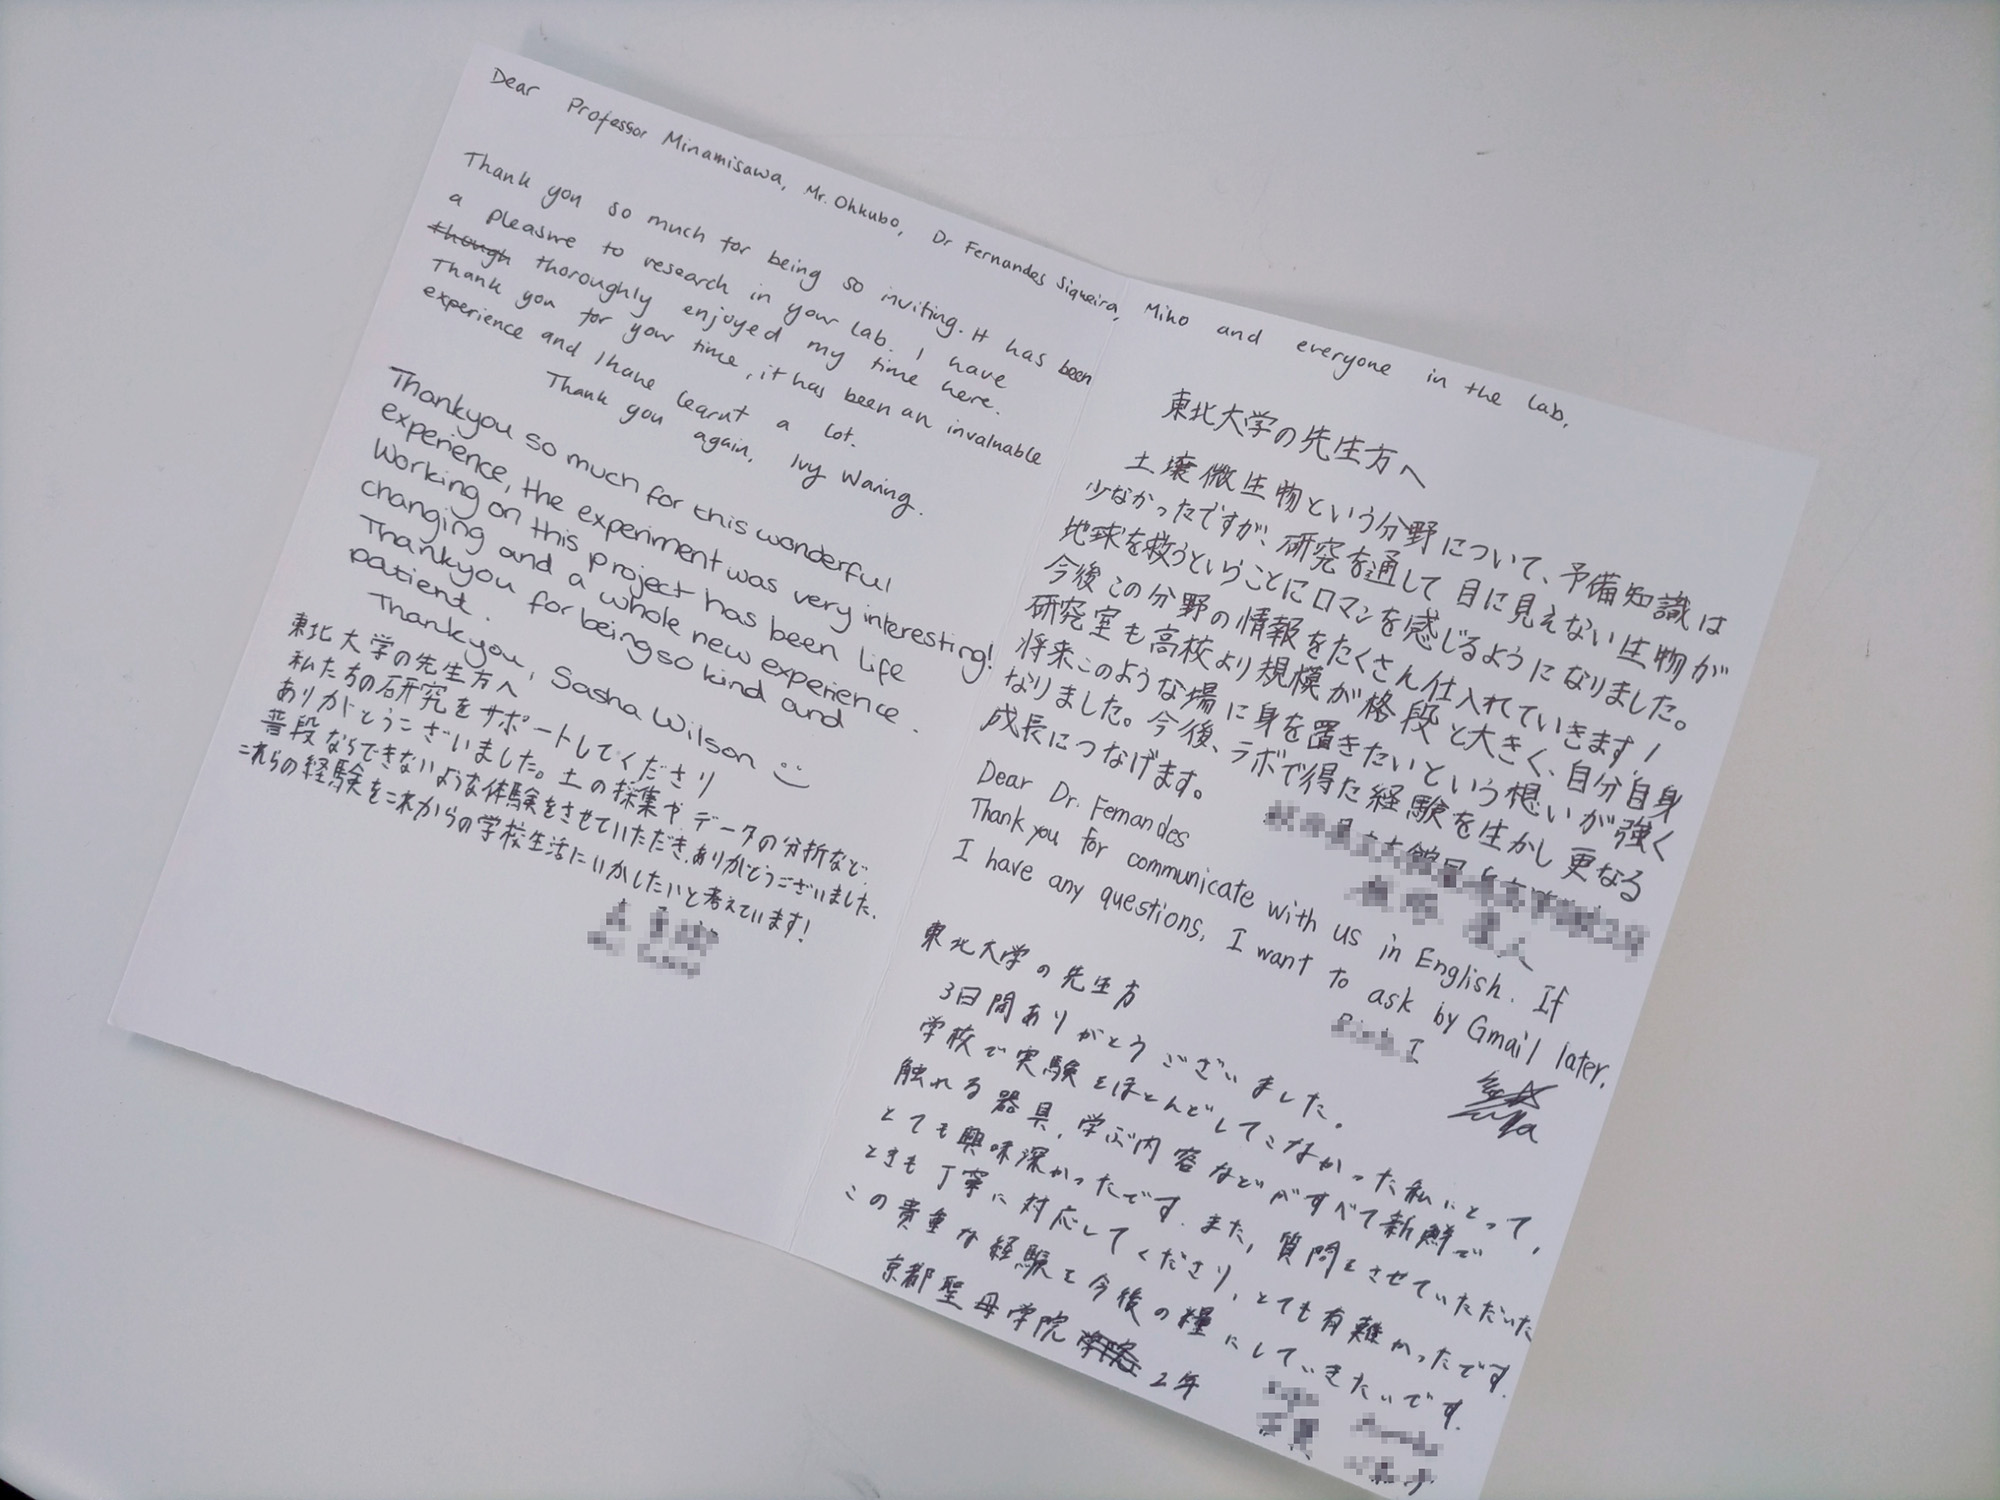 Dear Professor Minamisawa, Mr. Ohkubo, Dr Fernandes Siqueira, Miho and everyone in the lab,
Thank you so much for being so inviting. It has been
a pleasure to research in your lab. I have
though thoroughly enjoyed my time here.
Thank you for your time, it has been an invaluable
experience and I have learnt a lot.
Thank you again, Ivy Waring.
Thankyou so much for this wonderful
experience, the experiment was very interesting!
Working on this project has been life
changing and a whole new experience.
Thankyou for being so kind and
patient.
Thankyou, Sasha Wilson
東北大学の先生方へ
私たちの研究をサポートしてくださり
ありがとうございました。土の採集や データの分析など、
普段ならできないような体験をさせていただき、ありがとうございました。
これらの経験をこれからの学校生活にいかしたいと考えています!
東北大学の先生方へ
土壌微生物という分野について、予備知識は
少なかったですが、研究を通して目に見えない生物が
地球を救うということにロマンを感じるようになりました。
今後この分野の情報をたくさん仕入れていきます!
研究室も高校より規模が格段と大きく、自分自身
将来このような場に身を置きたいという想いが強く
なりました。今後、ラボで得た経験を生かし更なる
成長につなげます。
Dear Dr. Fernandes
Thank you for communicate with us in English. If
I have any questions, I want to ask by Gmail later.
I
東北大学の先生方
3日間ありがとうございました。
学校で実験をほとんどしてこなかった私にとって,
触れる器具,学ぶ内容などがすべて新鮮で
とても興味深かったです.また,質問をさせていただいた
ときも丁寧に対応してくださり,とても有難かったです.
この貴重な経験を今後の糧にしていきたいです.
京都聖母学院 学院 2年